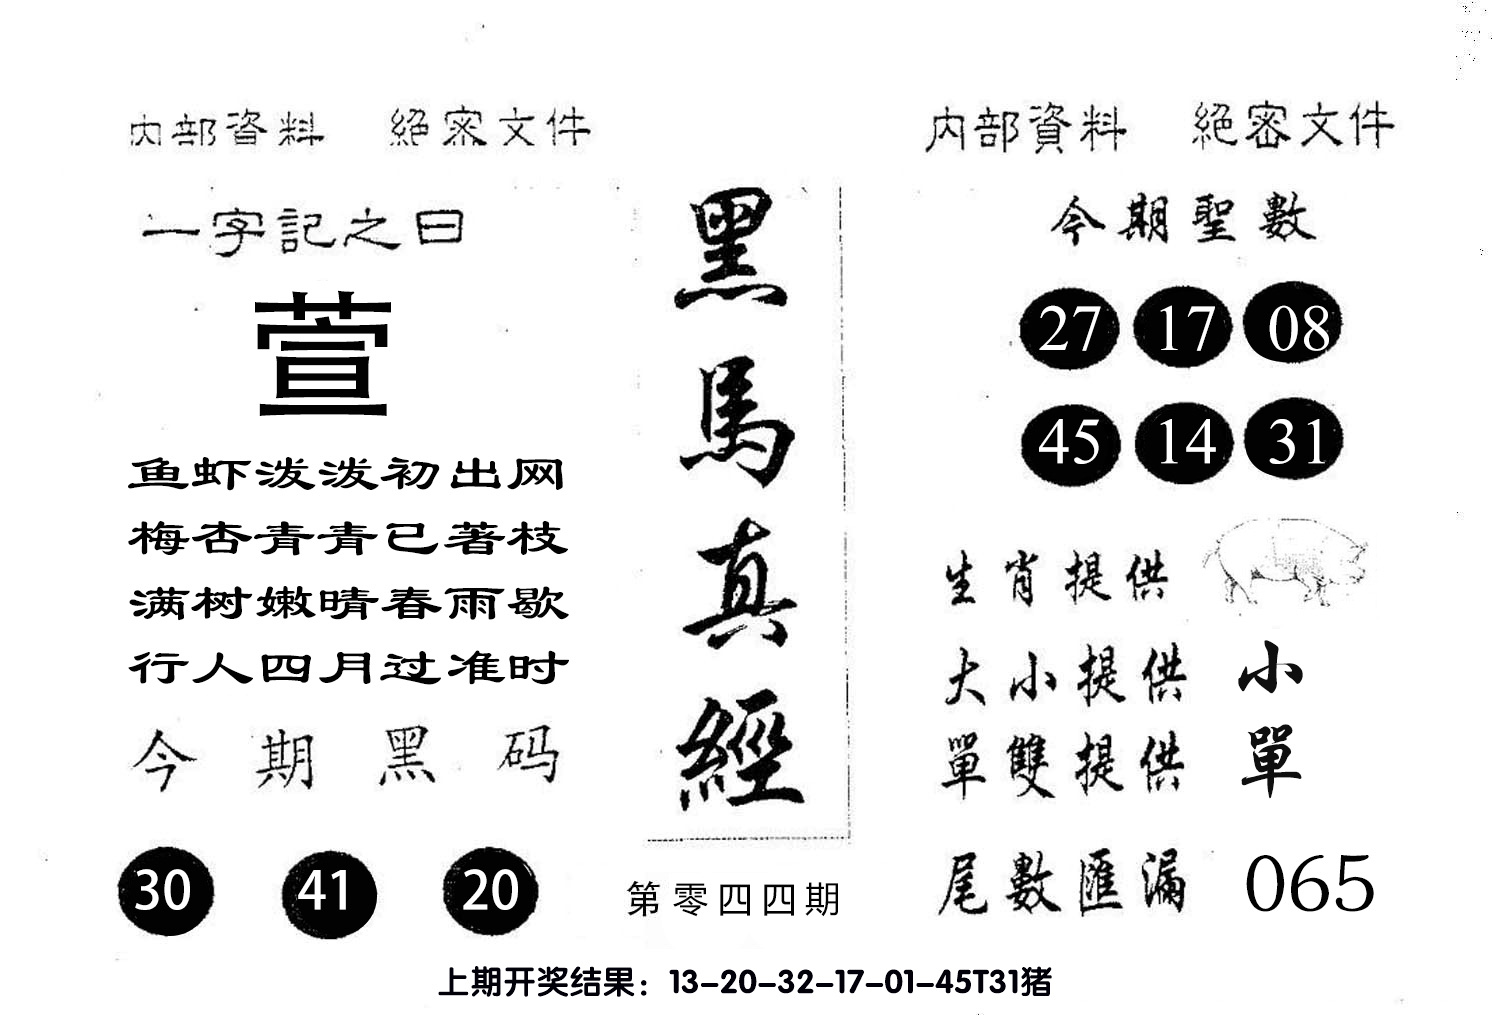 内部資料 絕密文件
一字記之曰
萱
鱼虾泼泼初出网
梅杏青青已著枝
满树嫩晴春雨歇
行人四月过准时
今期黑码
30 41 20
黑馬真經
第零四四期
内部資料 絕密文件
今期聖數
27 17 08
45 14 31
生肖提供
大小提供 小
單雙提供 單
尾數匯漏 065
上期开奖结果：13-20-32-17-01-45T31猪